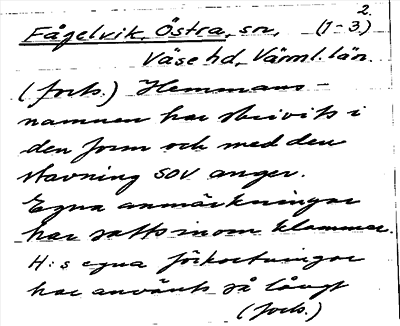 2.
Fågelvik, Östra, sn, (1-3.)
Väse hd, Värml. län.
(forts.) Hemmans-
namnen har skrivits i
den form och med den
stavning SOV anger.
Egna anmärkningar
har satts inom klammer.
H:s egna förkortningar
har använts så långt
(forts.)